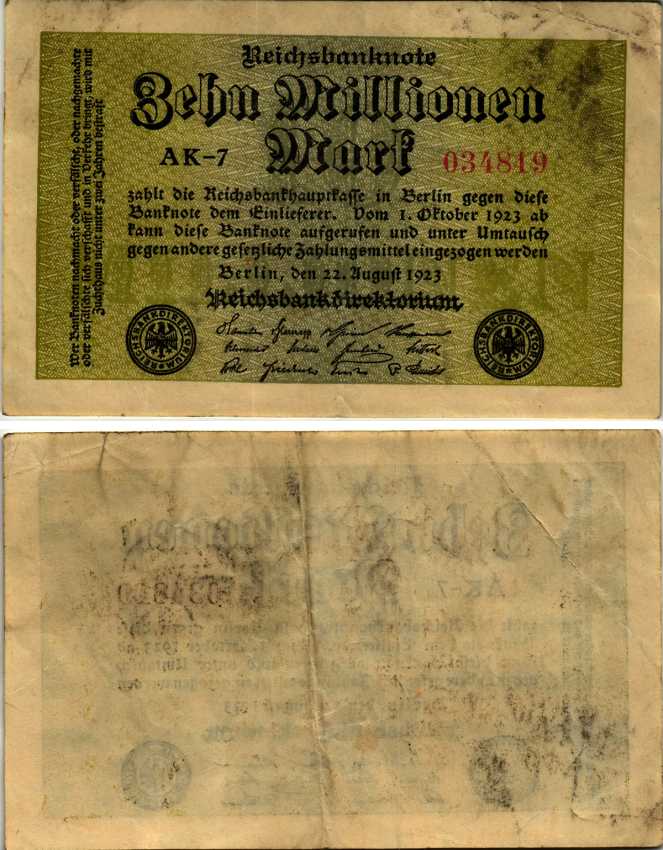 Reichsbanknote
Zehn Millionen
Mark
AK-7
034819
zahlt die Reichsbankhauptkasse in Berlin gegen diese
Banknote dem Einlieferer. Vom 1. Oktober 1923 ab
kann diese Banknote aufgerufen und unter Umtausch
gegen andere gesetzliche Zahlungsmittel eingezogen werden
Berlin, den 22. August 1923
Reichsbankdirektorium
REICHSBANKDIREKTORIUM
REICHSBANKDIREKTORIUM
Wer Banknoten nachmacht oder verfälscht, oder nachgemachte
oder verfälschte sich verschafft und in Verkehr bringt, wird mit
Zuchthaus nicht unter zwei Jahren bestraft